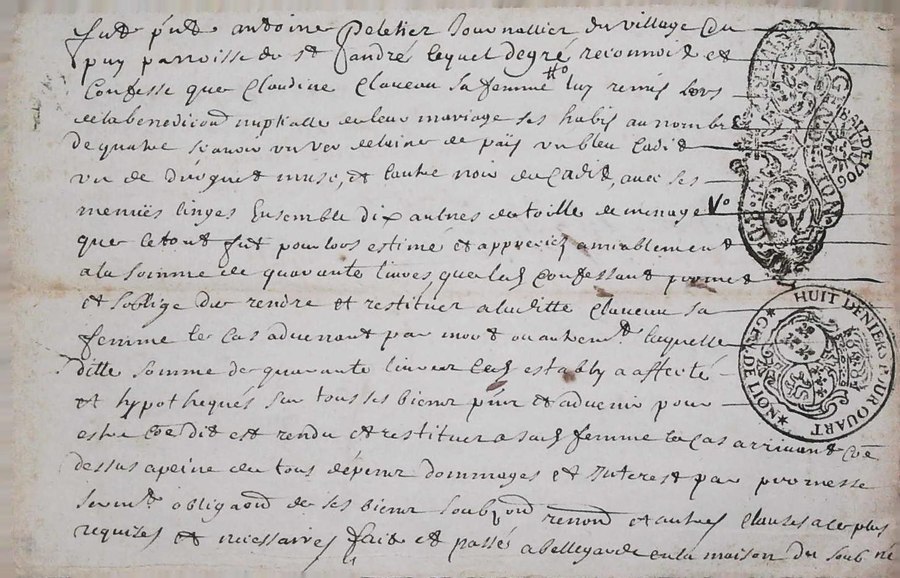 fut pnt antoine Peletier Journallier du village du
puy parroisse de st andré lequel de gré reconnoit et
Confesse que Claudine Claveau sa femme luy remis lors
de la benediction nuptialle de leur mariage ses habis au nombre
de quatre un de laine de païs un bleu Cadis
un de droguet muse, et lautre noir de Cadis, avec ses
menuës linges Ensemble dix autres de toille de menage
que le tout fut pour lors estimé et apprecié amiablement
a la somme de quarante livres que led Confessant promet
et soblige de rendre et restituer a laditte Claveau sa
femme le Cas advenant par mort ou autremt laquelle
ditte somme de quarante livres led estably a affecté
et hypothequés sur tous ses biens pnt et advenir pour
estre Coe dit est rendu et restituer a sad femme le cas arrivant Coe
dessus a peine de tous dépens dommages et Interest par promesse
sermt obligaon de ses biens soubz renon et autres Clauses a ce plus
requises et necessaires fait et passé a bellegarde en la maison du soub né
GN DE LION
HUIT DENIERS POUR QUART
GEN DE LION